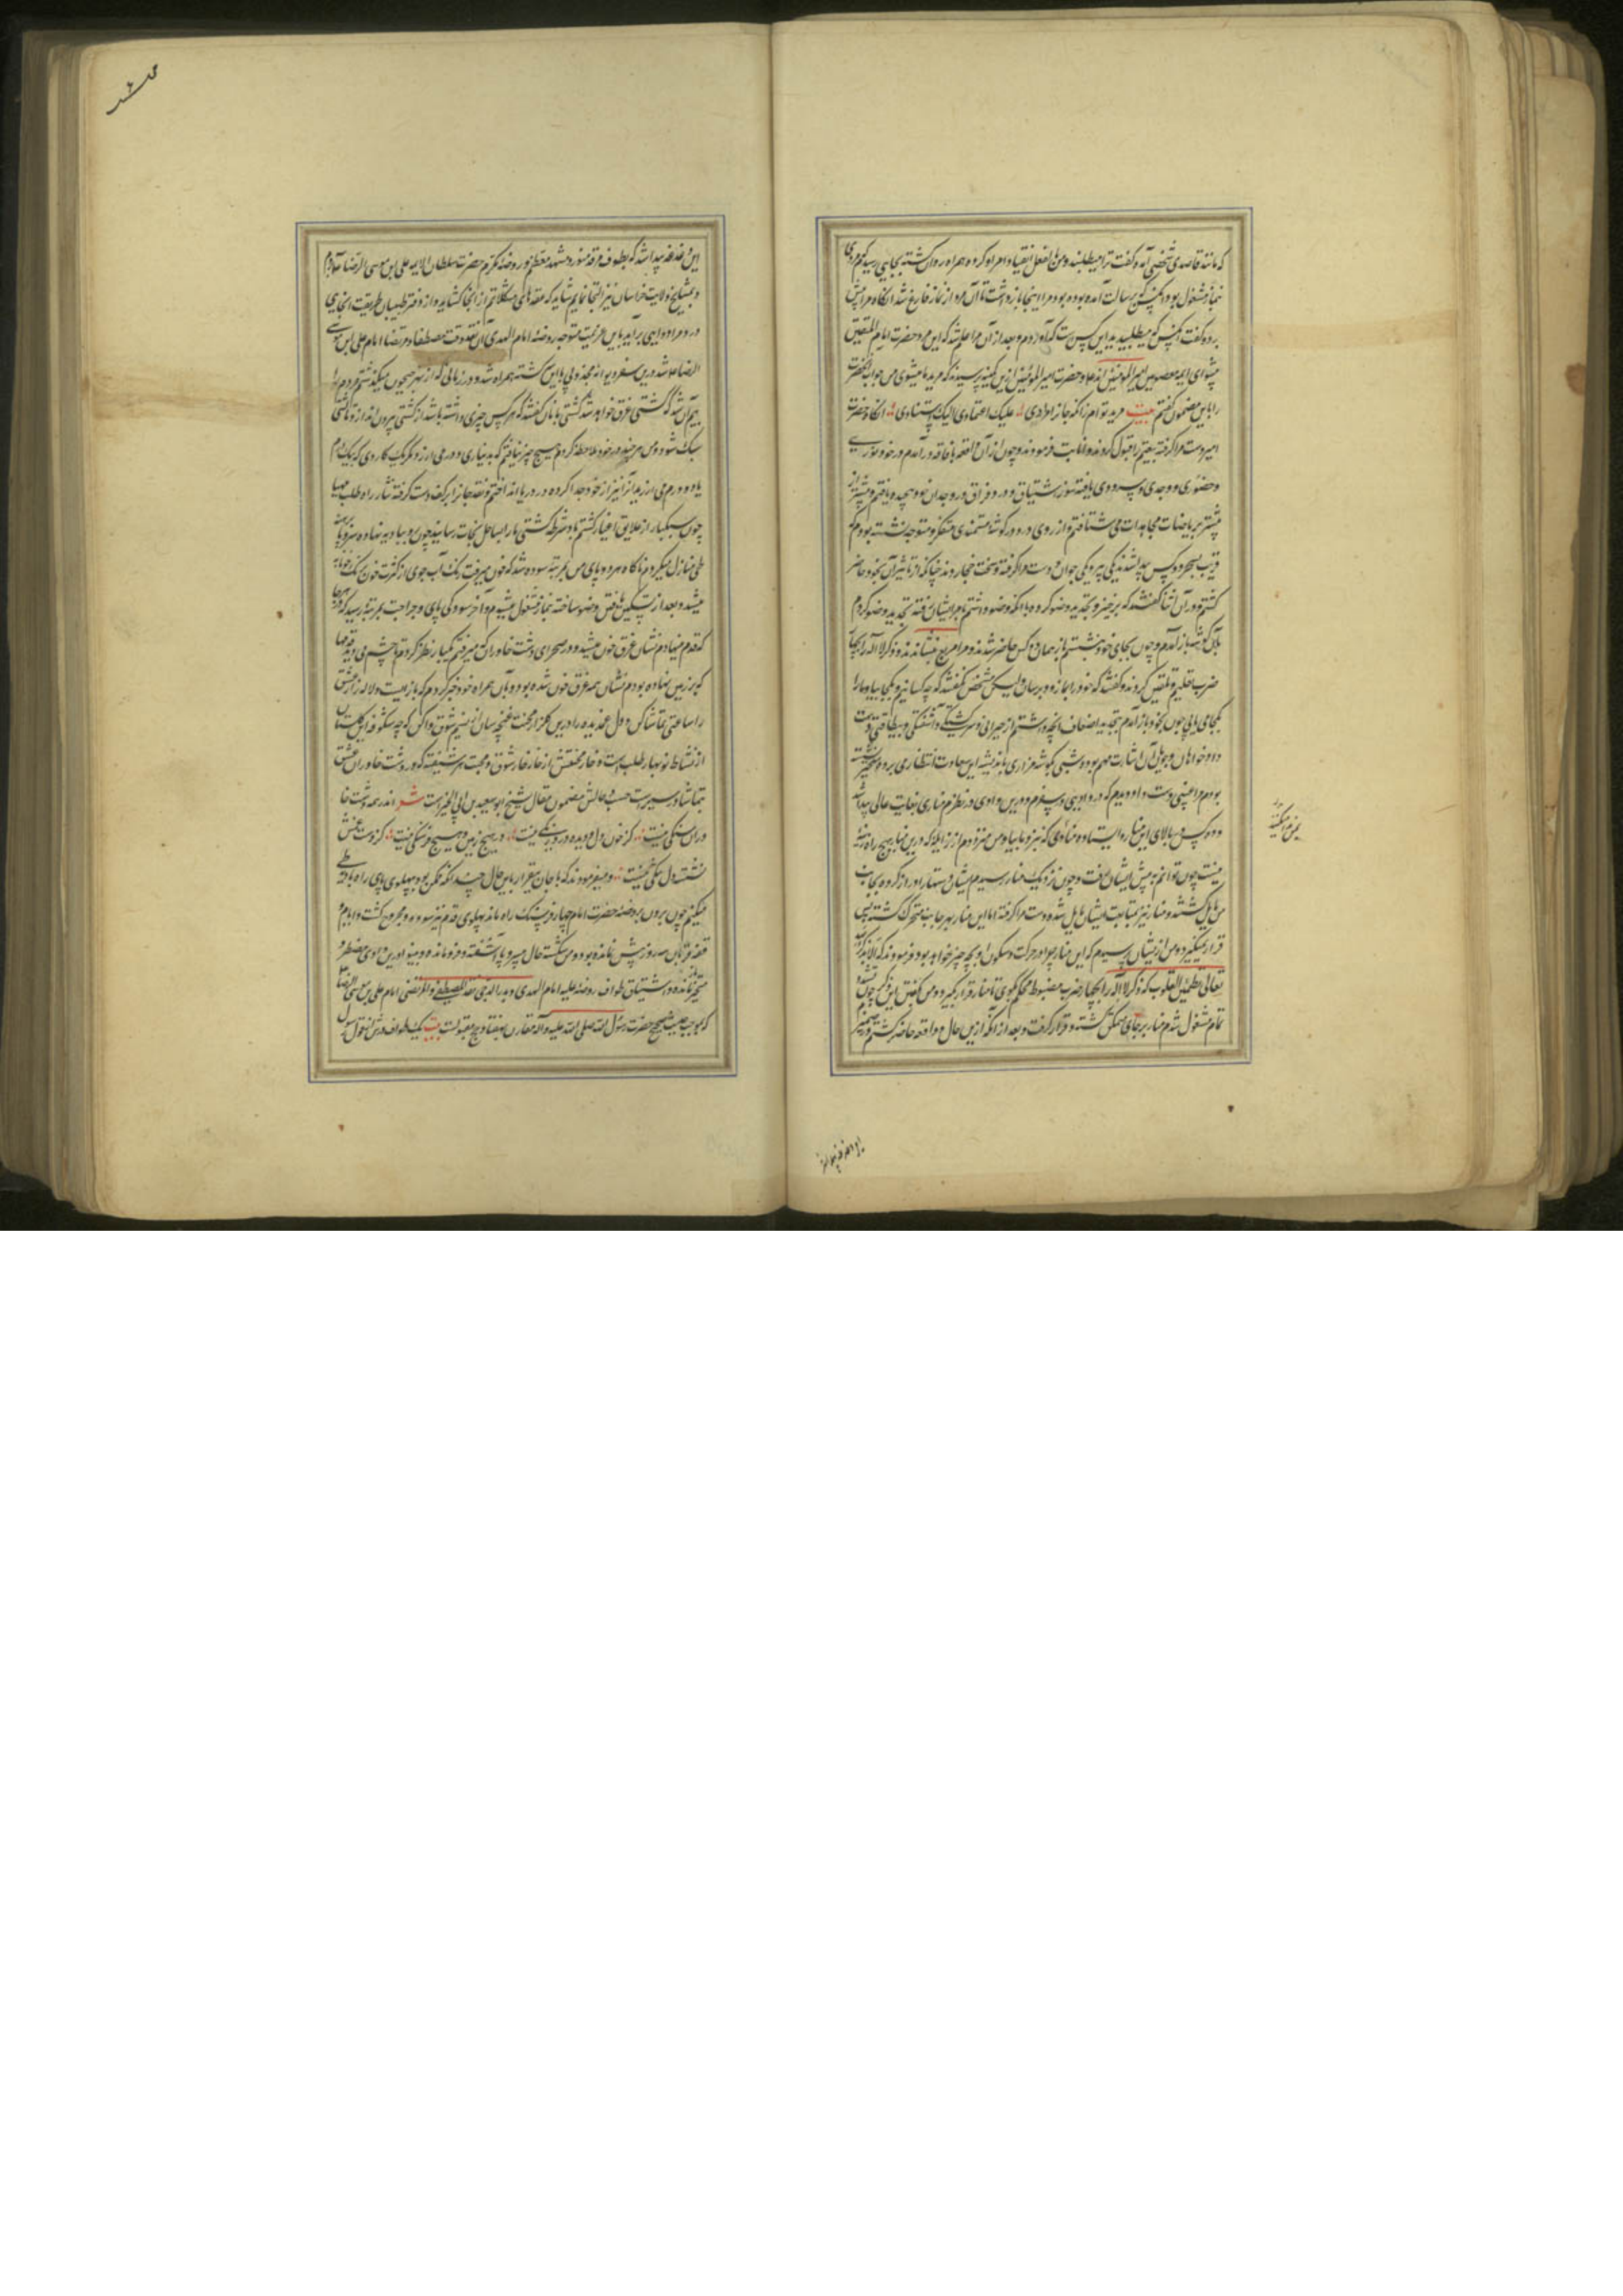 که مانند قاصدی شخصی آمد و گفت ترا میطلبند و من بنا بفعل انقیاد او همراه کرده همراه روان گشته بجایی رسیدم که مردی
نماز مشغول بود آنکس که برسالت آمده بود مرا اینجا بازداشت تا آن مرد از نماز فارغ شد آنگاه مرا پیش
برده گفت آنکس که میطلبیدید این کس است که آوردم و بعد از آن مرا اعلم شد که این مرد حضرت امام المتقین
پیشوای ایمه معصومین امیر المومنین اند علی و حضرت امیر المومنین ازین کمینه پرسیدند که مرید ما میشوی من جواب آنحضرت
را باین مضمون گفتم بیت مرید توام زانکه جانرا مرادی علیک اعتمادی الیک استنادی آنگاه حضرت
امیر دست مرا گرفته بیعتم را قبول کردند و انابت فرمودند و چون از آن واقعه بافاقه درآمدم در خود نوری
و حضوری و وجدی و سروری یافته سوز اشتیاق و درد فراق در وجدان خود پیچیده یافتم و پیشتر از
پیشتر بریاضات مجاهدات می شتافتم و از روی درد در گوشه مستمندی متفکر و متوجه نشسته بودم که
قریب بسحر دو کس پیدا شدند یکی پیر و یکی جوان و دست مرا گرفته و سخت فشاردند چنانکه از تاثیر آن بخود حاضر
گشتم و در آن اثنا گفتند که برخیز و تجدید وضو کرده با آنکه وضو داشتم بامر ایشان رفته تجدید وضو کردم
بآن گوشه باز آمدم و چون بجای خود نشستم باز همان دو کس حاضر شدند و مرا مربع نشاندند و ذکر لا اله را بچهار
ضرب تعلیم و تلقین کردند و گفتند که خود را بما زود برسان ولیکن مشخص نگفتند که چه کسانیم و کجا بیا و ما را
کجا می یابی چون بخود باز آمدم بتجدید اضعاف آنچه داشتم از حیرانی و سرگشتگی و آشفتگی و بیطاقتی دست
داد و خواهان وجویان آن اشارت مبهم بوده شبی بگوشه مزاری باندیشه این سعادت انتظاری برده و متحیر نشسته
بودم مرا غیبتی دست داد دیدم که در وادیی در سفرم و درین وادی در نظرم مناری بغایت عالی پیدا شد
و دو کس بر بالای این مناره ایستاده منادی که نزد ما بیا و من متردد ام از نزاکه درین منار هیچ راه زینه
نیست چون توانم به پیش ایشان رفت و چون نزدیک منار رسیدم ایشان دستها را دراز کرده بجانب
من مایل گشتند و منار نیز بمتابعت ایشان مایل شده دست مرا گرفته اما این منار بهر جانب متحرک گشته
قرار نمیگیرد و من از ایشان پرسیدم که این منار چرا در حرکت و سکون او بچه چیز خواهد بود فرمودند که الا بذکر
تعالی تطمئن القلوب که ذکر لا اله را بچهار ضرب مضبوط محکم بگوی تا منار قرار گیرد و من بگفتن این ذکر چون
تمام مشغول شدم منار بر جای متمکن گشته و قرار گرفت و بعد از آنکه ازین حال و واقعه حاضر گشتم در ضمیر
این دغدغه پیدا شد که بطوف مرقد منور و مشهد معظم نور روضه مکرم حضرت سلطان الایمه علی ابن موسی الرضا
و بمشایخ ولایت خراسان نیز التجا نمایم شاید که عقدهای مشکلاتم از آنجا گشاید و از دفتر طبیبان طریقت آنجایی
درد مرا دوایی برآید باین عزیمت متوجه روضه امام الهدی آن نقد وقت مصطفی و مرتضا امام علی ابن موسی
الرضا علیه شد درین سفر دیوانه مجذوبی باین گشته همراه شد و در زمانی که از نهر جیحون میگذشتیم مردم را
بیم آن شد که کشتی غرق خواهد شد کشتی بانان گفتند که هر کس چیزی داشته باشد از کشتی بیرون اندازد تا کشتی
سبک شود و من هر چند در خود ملاحظه کردم هیچ چیز نیافتم که بدیناری و درمی ارزد مگر یک کاردی که یک درم
یا دو درم می ارزید آنرا نیز از خود جدا کرده در دریا انداختم و نقد جانرا بر کف دست گرفته نثار راه طلب
چون سبکبار از علایق اغیار گشتم باد شرطه کشتی ما را بساحل نجات رسانید چون رو ببادیه نهاده سر و پا برهنه
طی منازل میکردم ناگاه هر دو پای من بمرتبه سوده شد که خون میرفت
میشد و بعد از تسکین یافتن وضو ساخته بنماز مشغول میشدم و آخر سودگی پای و جراحت بمرتبه رسید که هر جا
که قدم مینهادم نشان غرق خون میشد و در صحرای دشت خاوران که میرفتم یکبار نظر کردم تا چشم می دید قدمها
که بر زمین نهاده بودم نشان همه غرق خون شده بود و بآن همراه خود خبر کردم که باز بیست و لاله زار عشق
را ساعتی تماشا کن و دل غمدیده را درین گلزار محبت غنچه سان از نسیم شوق واکن که چه شکوفه این گلستان
از نشاط نوبهار طلب است و خار محنتش از خار خار شوق و محبت هر شیفته که در دشت خاوران عشق
بتماشا و سیرست حسب حالش مضمون مقال شیخ ابو سعید بن ابی الخیر است شعر اندر همه دشت خا
وران سنگی نیست کز خون دل و دیده درو رنگی نیست در هیچ زمین و هیچ فرسنگی نیست کز دست غمش
نشسته دل تنگی نیست و میفرمودند که با جان بیقرار باین حال چندانکه ممکن بود پهلوی پای راه را طی
میکنم چون بدرون روضه حضرت امام چهار فرسنگ راه ماند پهلوی قدم نیز سوده و مجروح گشت
بود و من شکسته حال بی سر و پا آشفته و فرومانده و بینوا درین وادی مضطر و
متحیر مانده و اشتیاق طواف روضه علیه امام الهدی و بدر الدجی نقد المصطفی و المرتضی امام علی بن موسی الرضا
که بموجب حدیث صحیح حضرت رسول الله صلی الله علیه و آله مقارن بهفتاد حج مقبولست بیت یک طواف درش از قول رسول